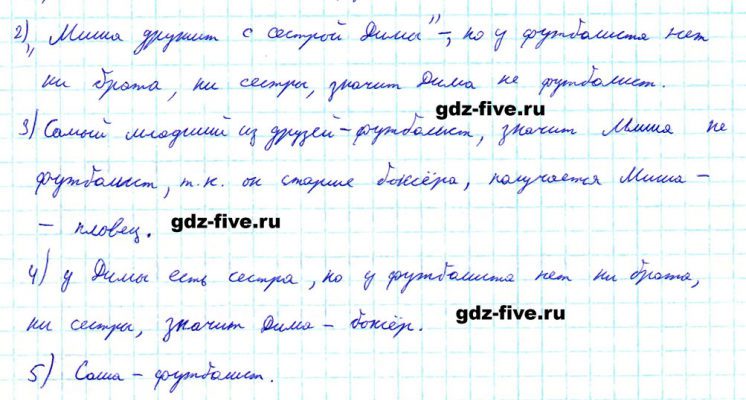 2) „Миша дружит с сестрой Димы" –, но у футболиста нет
ни брата, ни сестры, значит Дима не футболист.
gdz-five.ru
3) Самый младший из друзей – футболист, значит Миша не
футболист, т.к. он старше боксёра, получается Миша –
– пловец.
gdz-five.ru
4) у Димы есть сестра, но у футболиста нет ни брата,
ни сестры, значит Дима – боксёр.
gdz-five.ru
5) Саша – футболист.